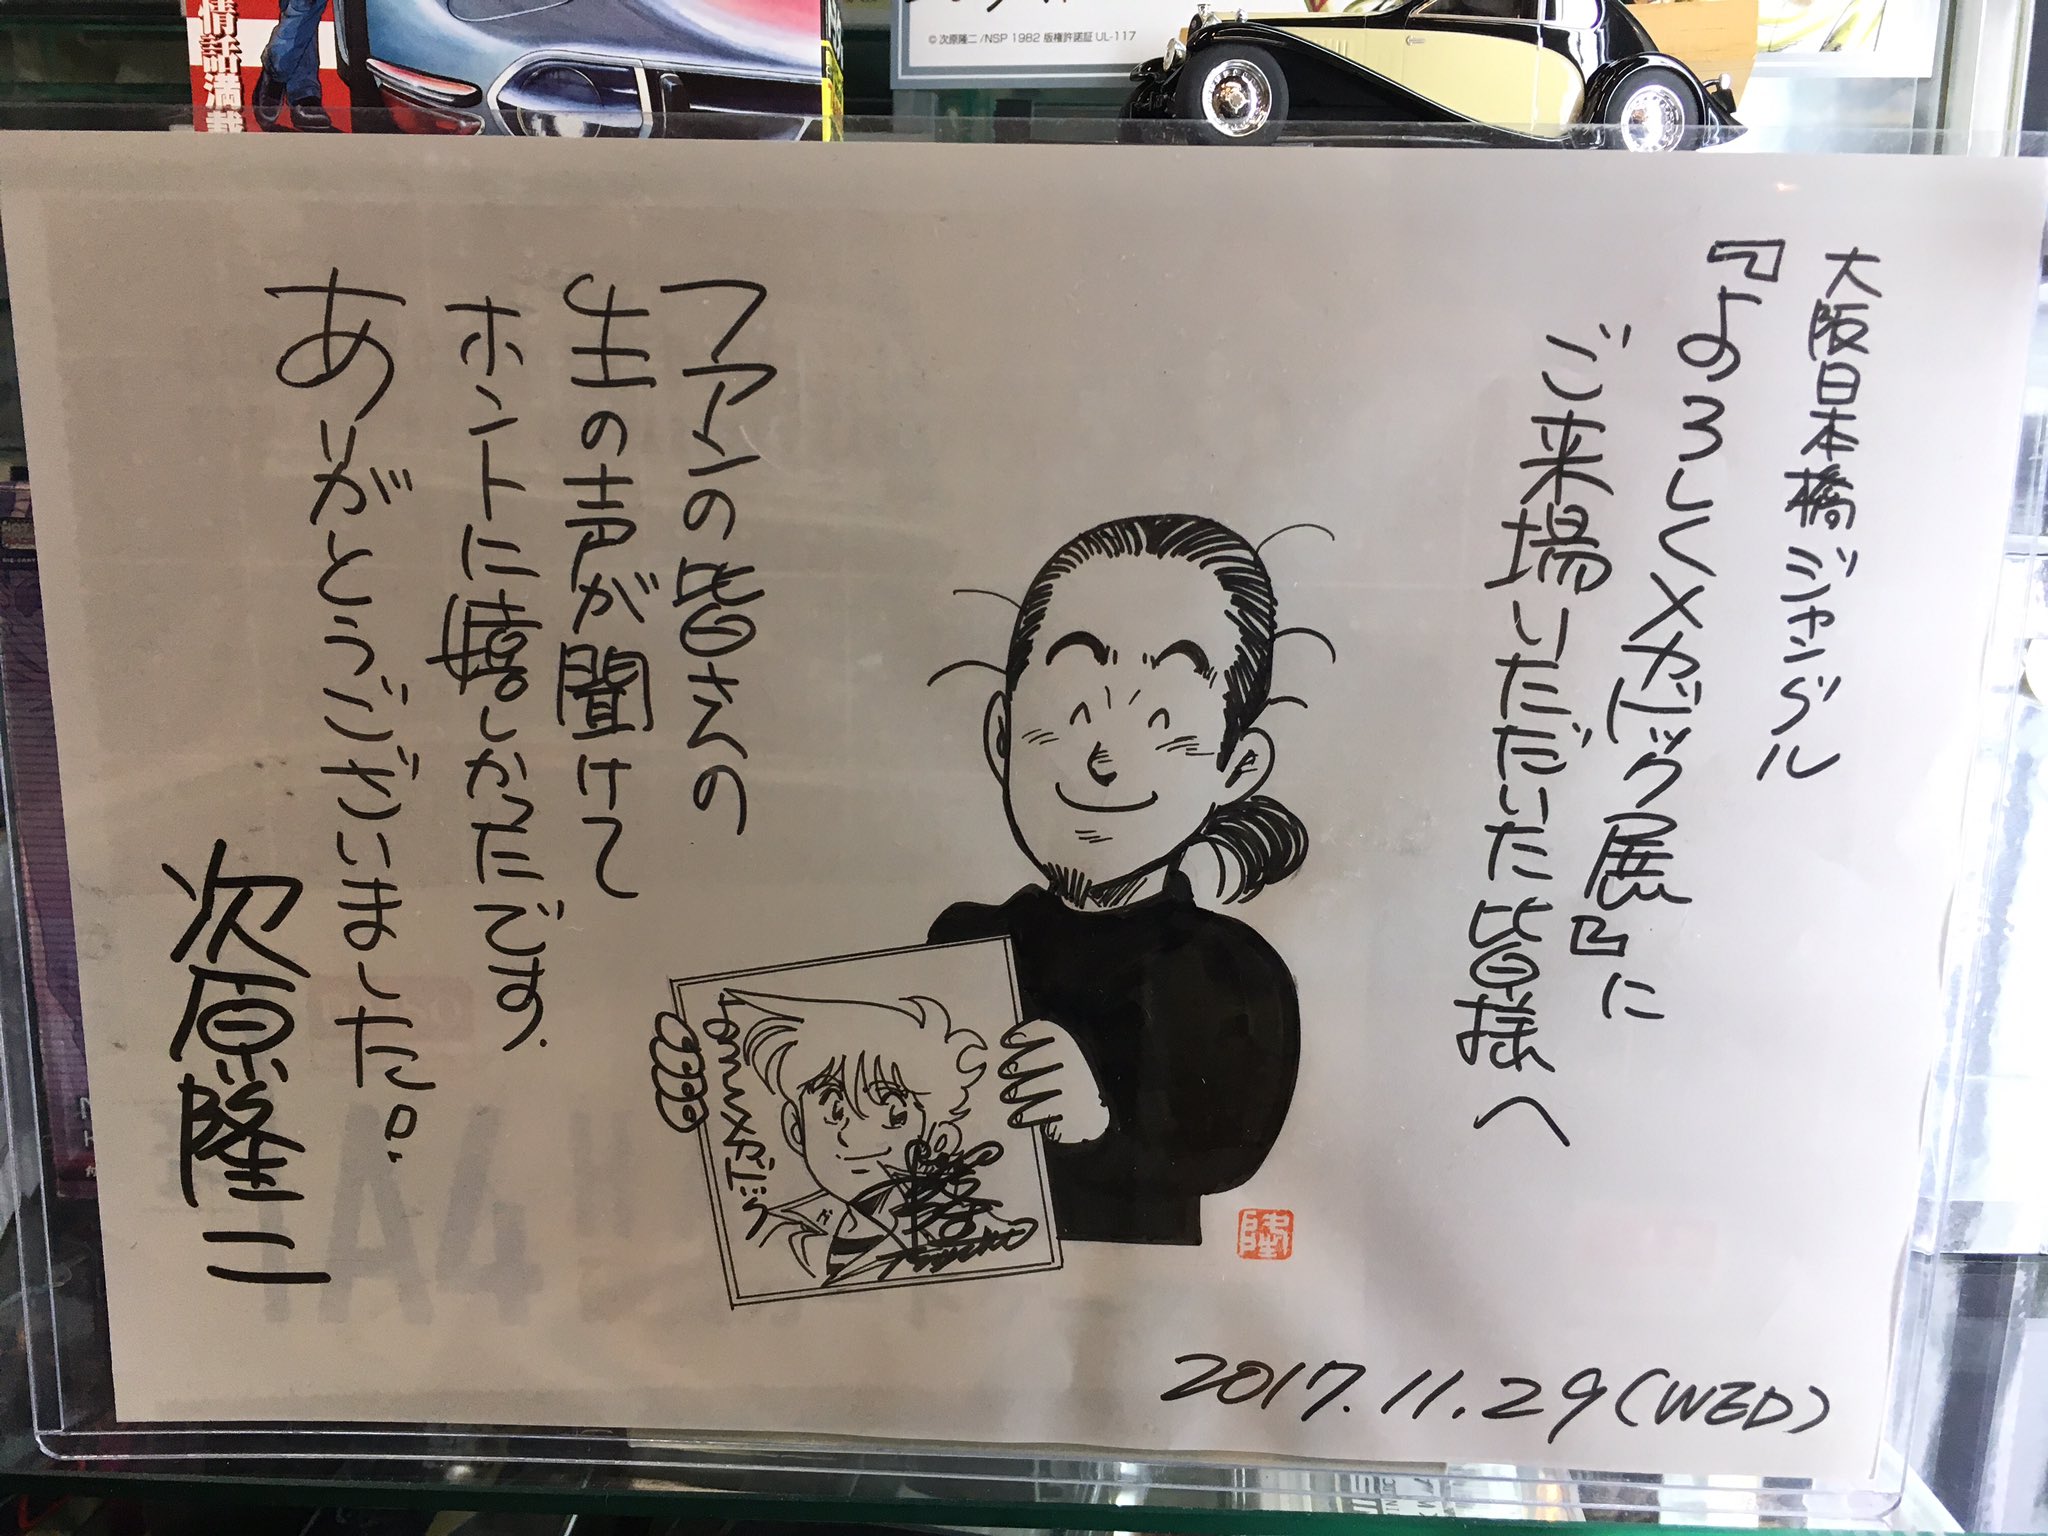 情話満載
©次原隆二/NSP 1982 版権許諾証 UL-117
大阪日本橋ジャングル
『よろしくメカドック展』に
ご来場いただいた皆様へ
ファンの皆さんの
生の声が聞けて
ホントに嬉しかったです.
ありがとうございました。
次原隆二
よろしくメカドック
隆
2017.11.29(WED)